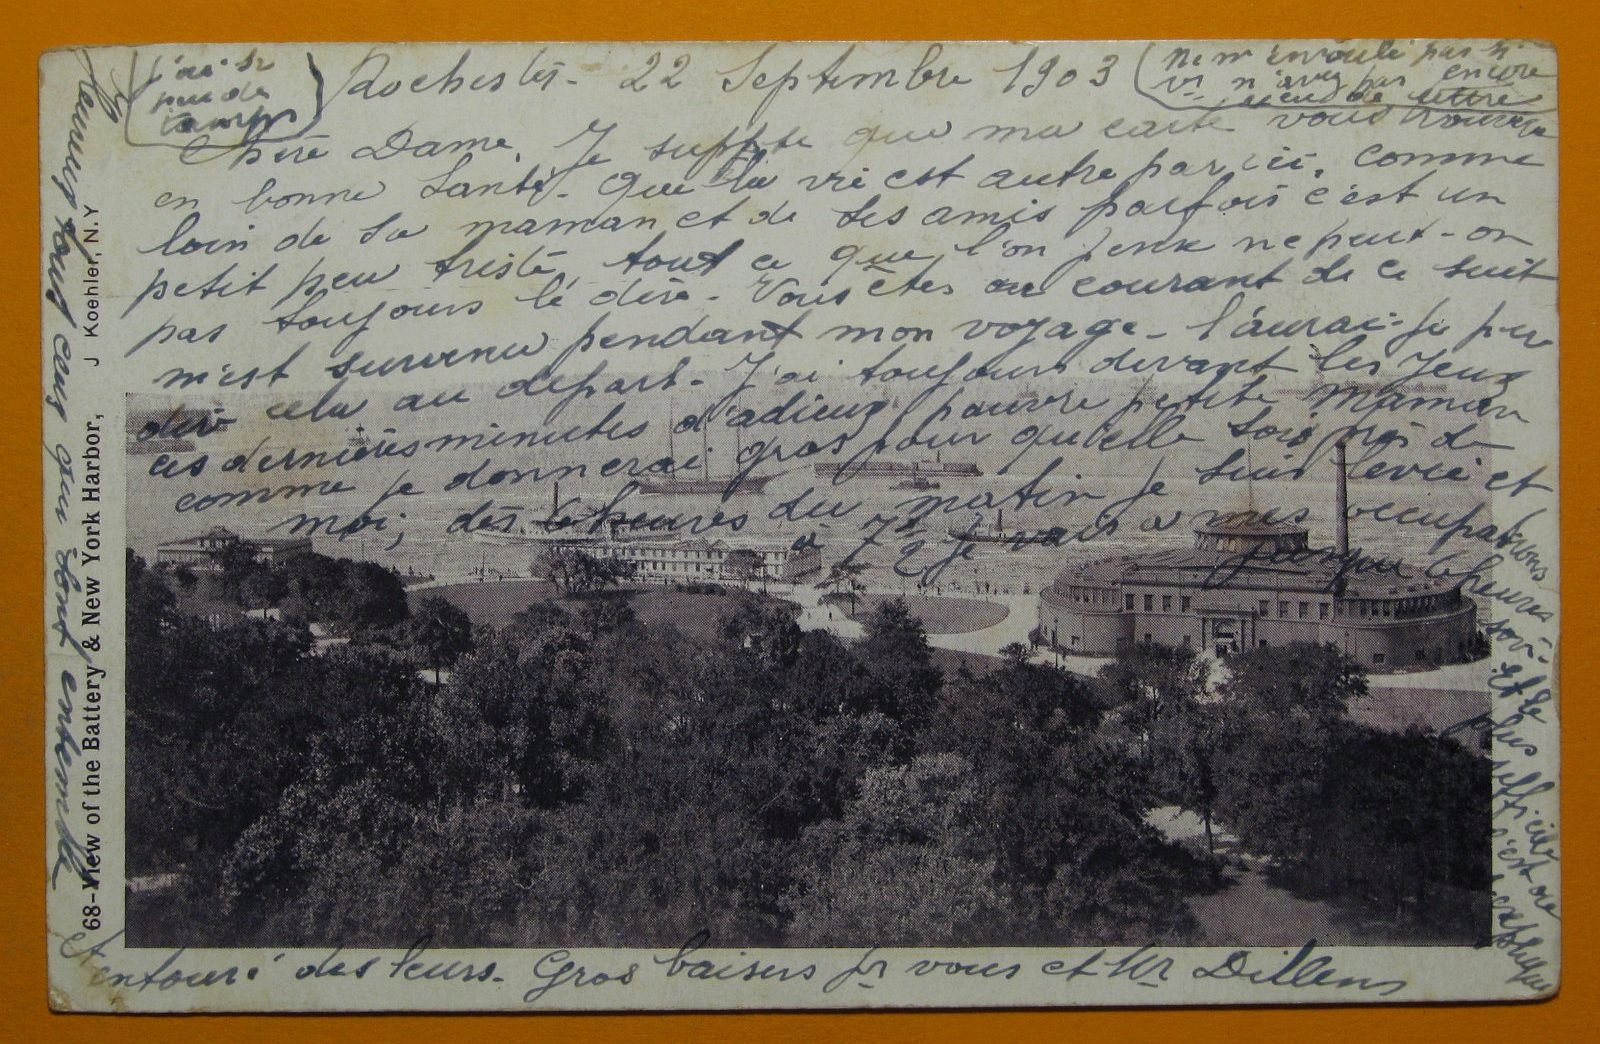 j'ai si
peu de
temps
Rochester - 22 Septembre 1903
Ne m'en voulé pas si
vs n'avez pas encore
eu de lettre
Chère Dame. Je suppose que ma carte vous trouvera
en bonne Santé - que la vie est autre par ici, comme
loin de sa maman et de ses amis parfois c'est un
petit peu triste, tout ce que l'on pense ne peut-on
pas toujours le dire - Vous êtes au courant de ce suit
m'est survenu pendant mon voyage - l'aurai-je pu
dire cela au départ - J'ai toujours devant les yeux
ces dernières minutes d'adieux pauvre petite maman
comme je donnerai gros pour qu'elle soie près de
moi, dès 6 heures du matin je suis levée et
à 7 1/2 je vais a mes occupations
jusque 6 heures
soir - Et le
plus difficile
c'est
entouré des leurs - Gros baisers pr vous et Mr Dillens
Heureux tous ceux qui sont ensemble
68-View of the Battery & New York Harbor,
J Koehler, N.Y